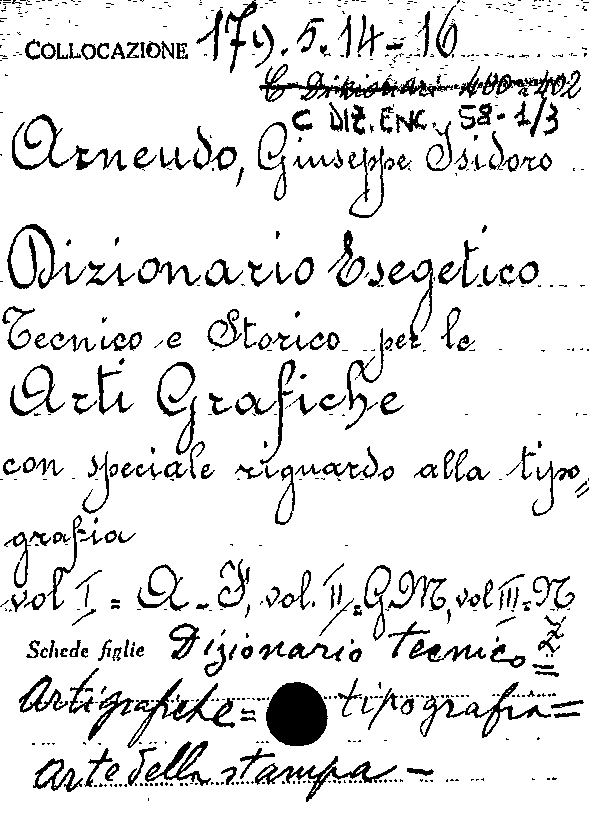 COLLOCAZIONE 179.5.14-16
C Dizionari 400-402
C DIZ. ENC. 58-1/3
Arneudo, Giuseppe Isidoro
Dizionario Esegetico
Tecnico e Storico per le
Arti Grafiche
con speciale riguardo alla tipo=
grafia
vol I = A-F, vol. II = G-M, vol III = N
Z
Schede figlie Dizionario tecnico=
Arti grafiche= tipografia=
Arte della stampa-